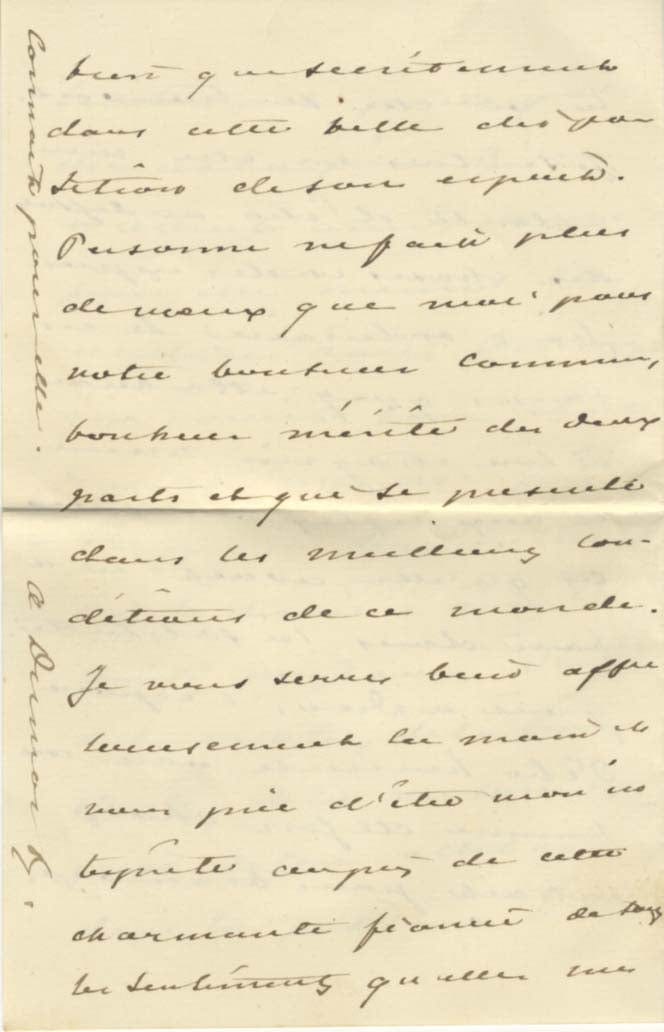 bien que secrètement
dans cette belle dispo
sitions de son esprit.
Personne ne fait plus
de vœux que moi pour
votre bonheur commun,
bonheur mérité des deux
parts et qui se présente
dans les meilleurs con-
ditions de ce monde.
Je vous serre bien affec
tueusement la main et
vous prie d'être mon in
terprète auprès de cette
charmante fiancée de tous
les sentiments qu'elle me
connait pour elle.
A Dumas f.